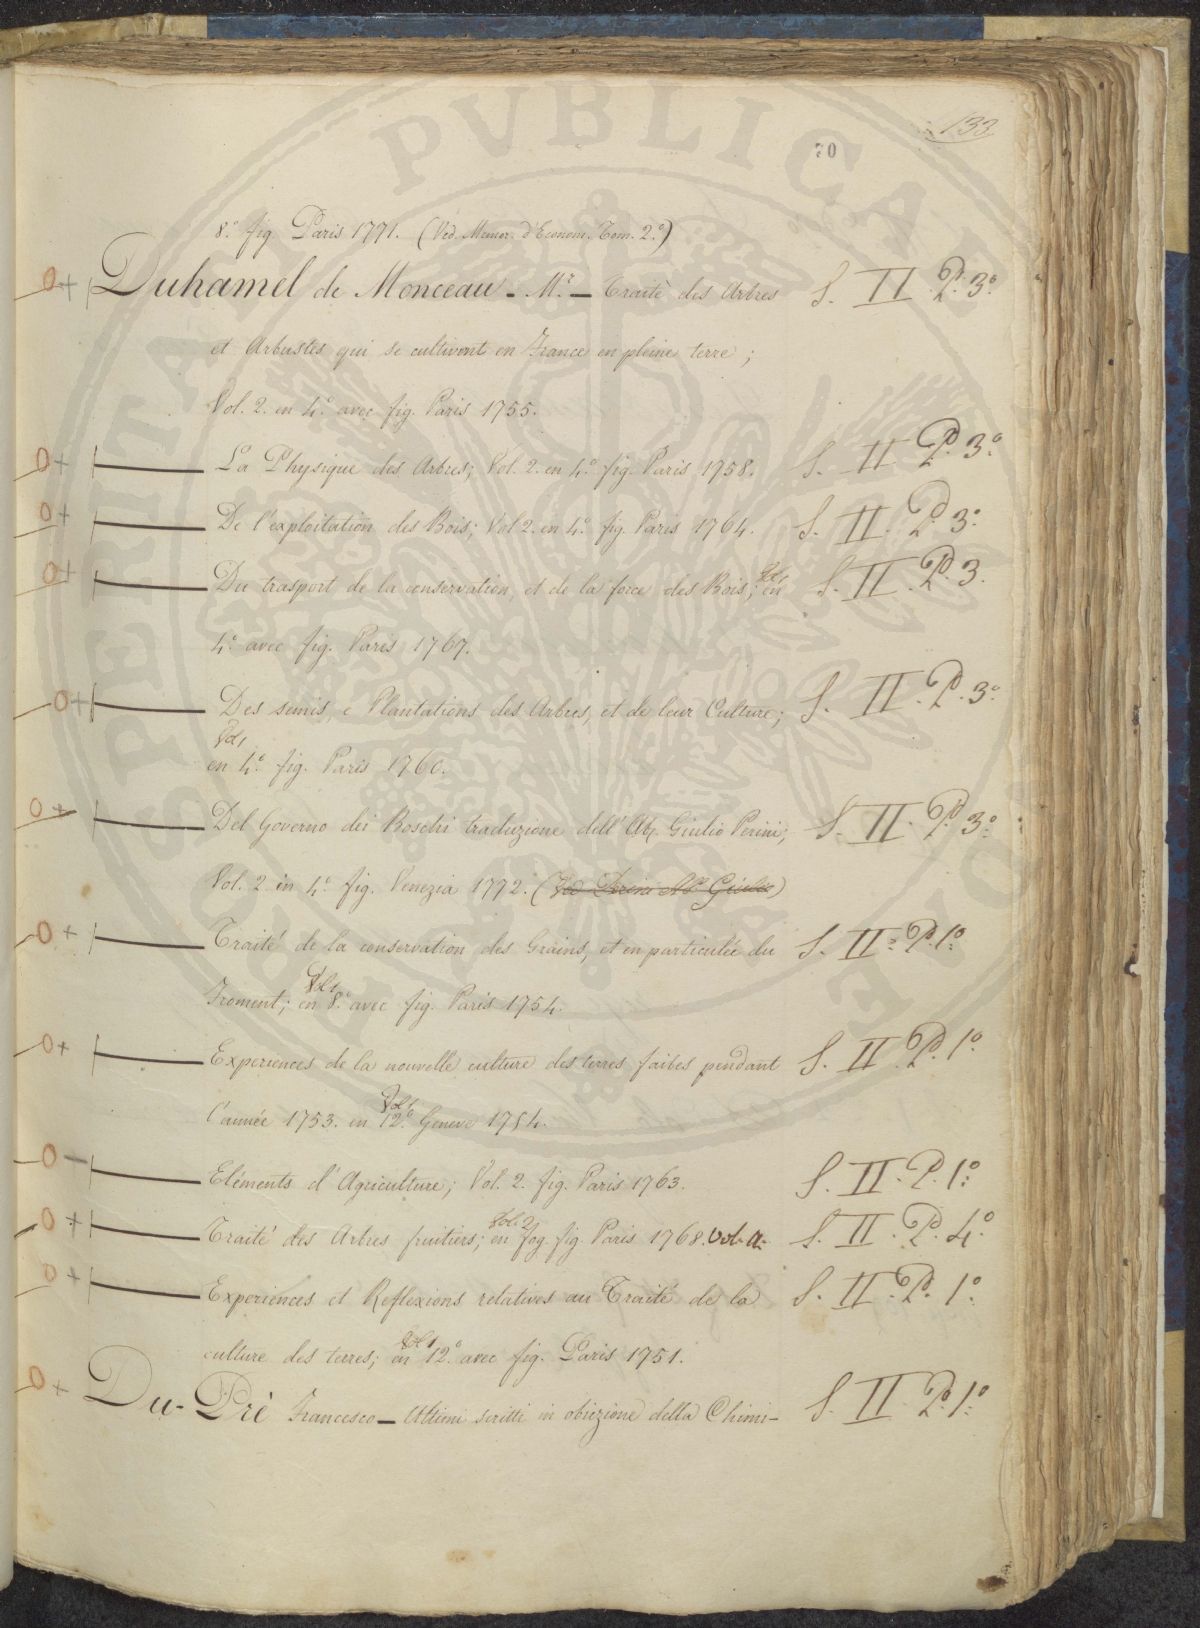 133
70
8.° fig. Paris 1771. (Ved. Memor. d'Econom. Tom. 2.°)
0+ Duhamel de Monceau - M.r - Traité des Arbres S. II. P. 3°
et Arbustes qui se cultivent en France en pleine terre;
Vol. 2. en 4.° avec fig. Paris 1755.
0+ La Physique des Arbres; Vol. 2. en 4.° fig. Paris 1758. S. II P. 3°
0+ De l'exploitation des Bois; Vol 2. en 4.° fig. Paris 1764. S. II. P. 3°
0+ Du trasport de la conservation, et de la force des Bois; Vol. 1 en S. II. P. 3.
4.° avec fig. Paris 1767.
0+ Des semis, e Plantations des Arbres, et de leur Culture; S. II. P. 3°
Vol. 1
en 4.° fig. Paris 1760.
0+ Del Governo dei Boschi traduzione dell'Ab. Giulio Perini; S. II. P. 3°
Vol. 2 in 4.° fig. Venezia 1772. (Ved Perini Ab. Giulio)
0+ Traité de la conservation des Grains, et en particulée du S. II. P. 1°
Froment; Vol. 1 en 8.° avec fig. Paris 1754.
0+ Experiences de la nouvelle culture des terres faites pendant S. II. P. 1°
l'année 1753. en Vol. 1 12.° Geneve 1754.
0- Eléments d'Agriculture; Vol. 2. fig. Paris 1763. S. II. P. 1°
0+ Traité des Arbres fruitiers; Vol. 2 en fog. fig. Paris 1768. Vol. a. S. II. P. 4°
0+ Experiences et Reflexions relatives au Traité de la S. II. P. 1°
culture des terres; Vol. 1 en 12.° avec fig. Paris 1751.
0+ Du-Prè Francesco - Ultimi scritti in obiezione della Chimi- S. II. P. 1°